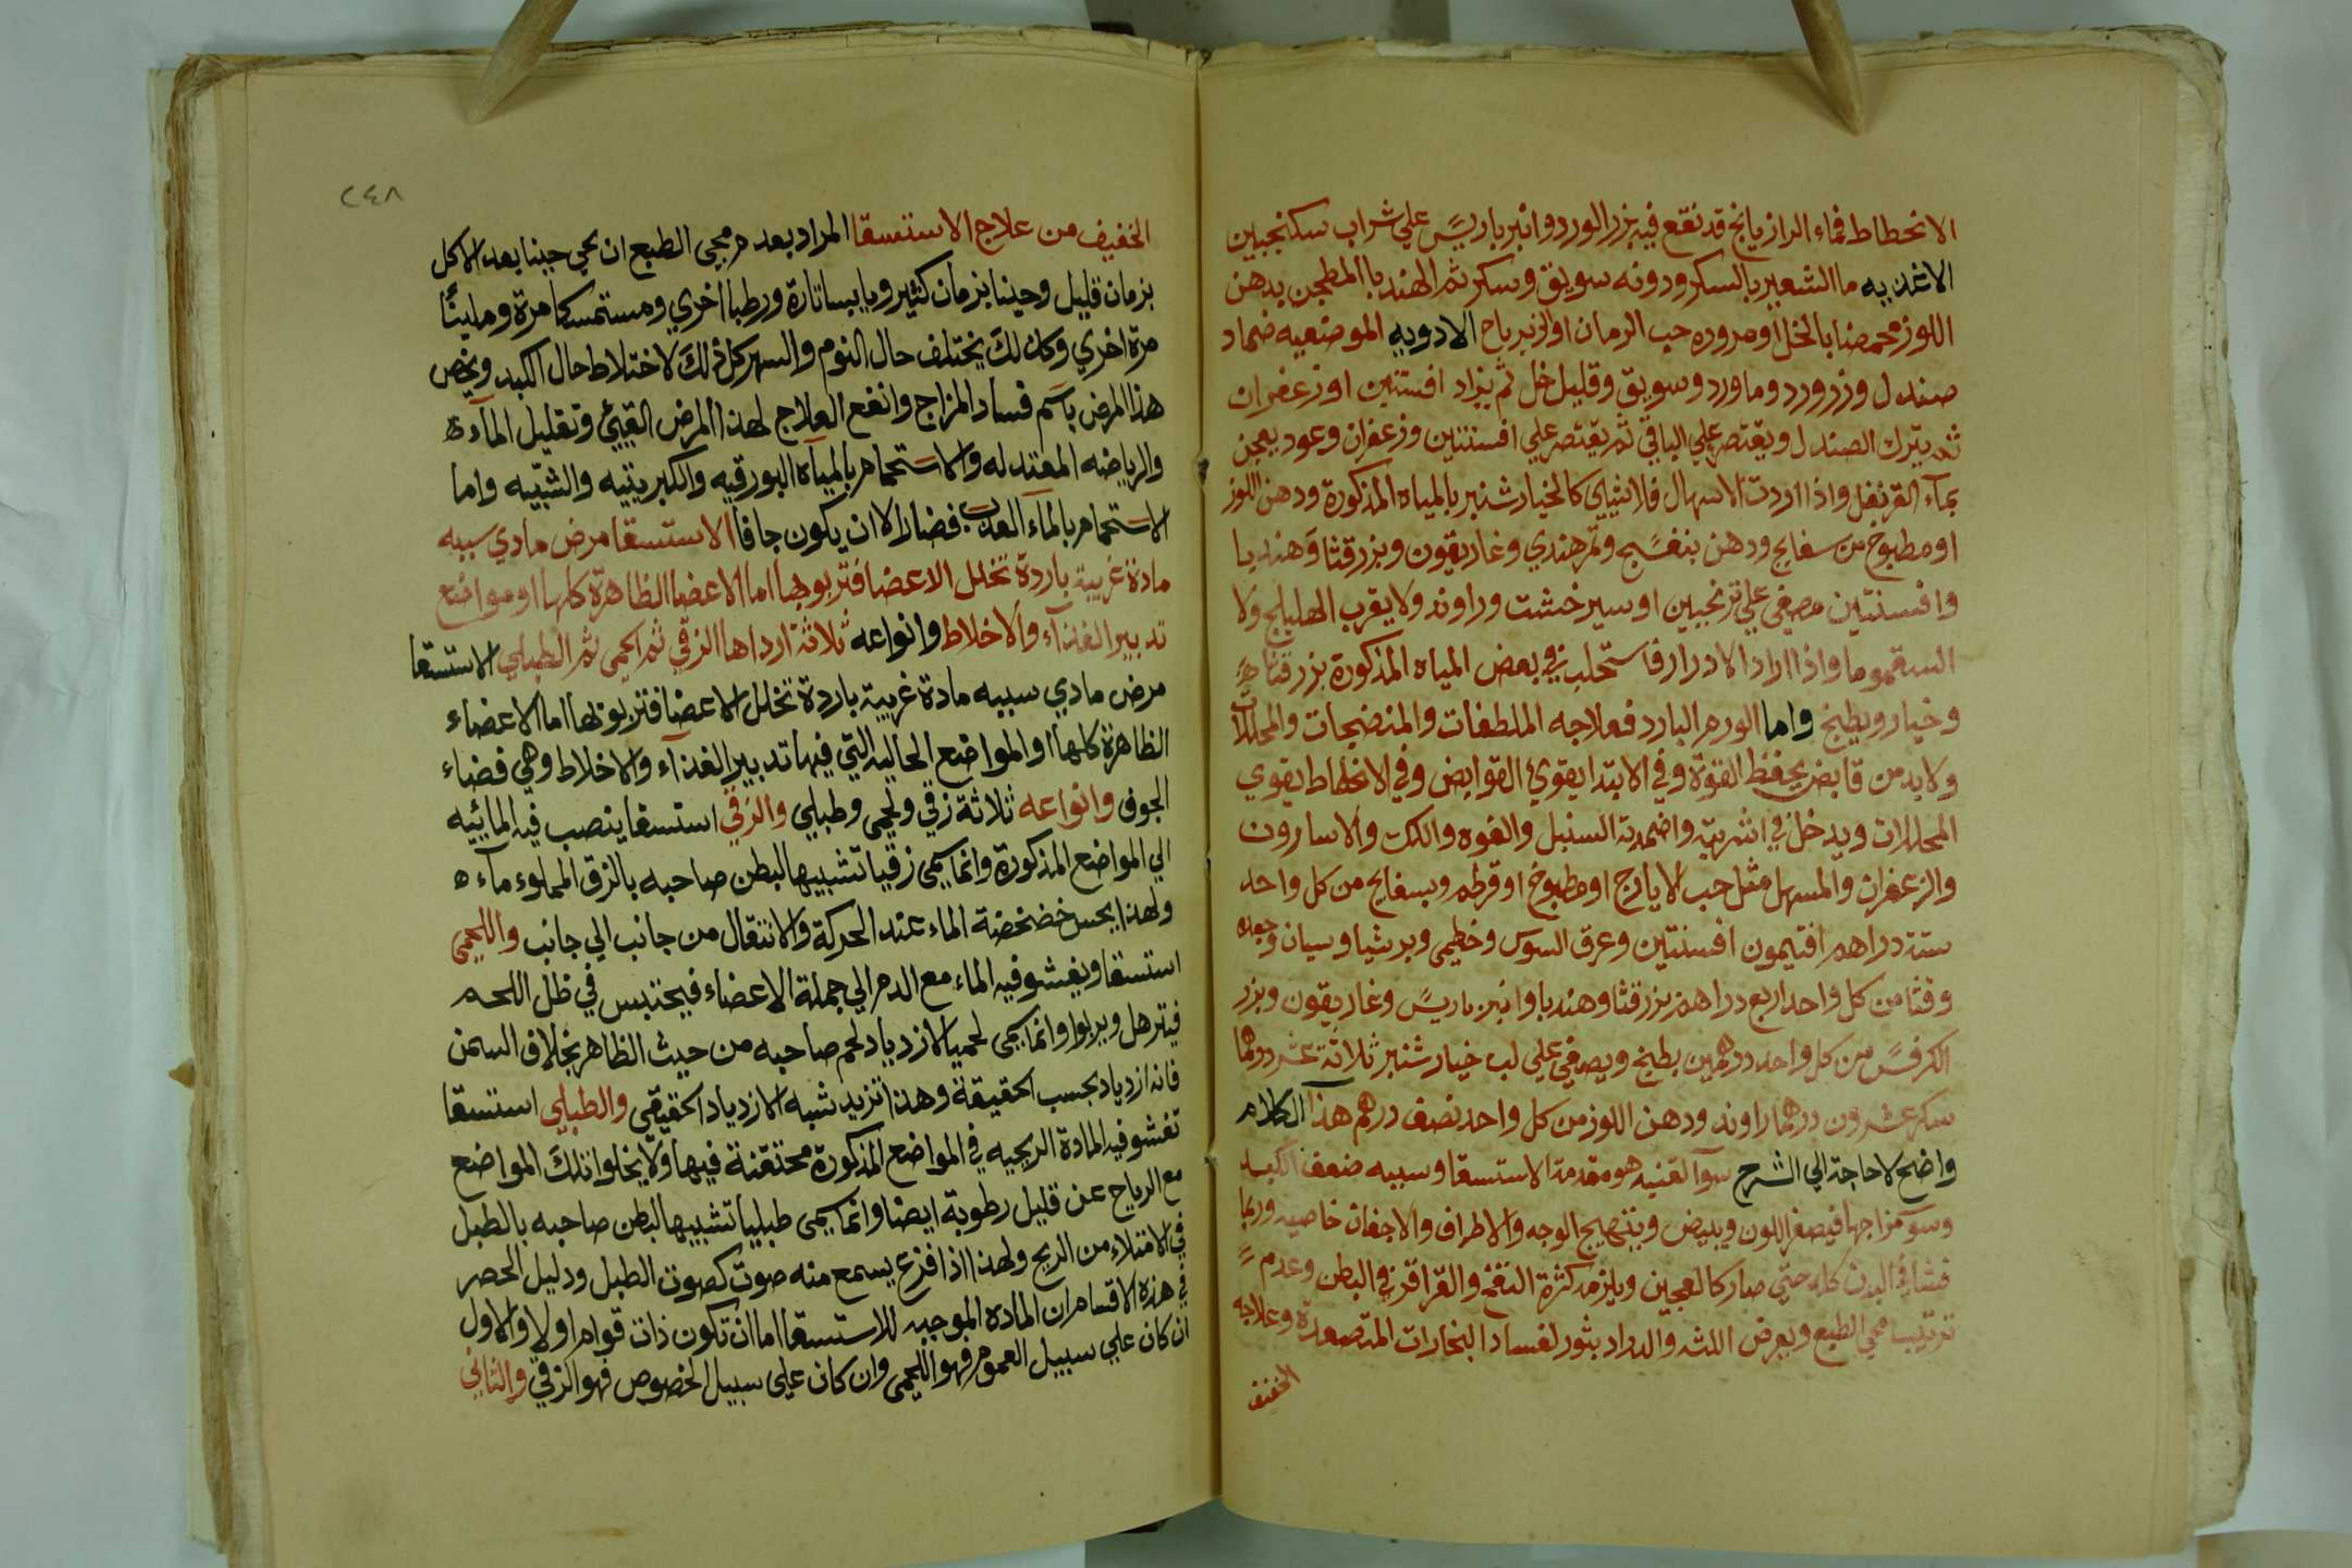 الانحطاط فماء الرازيانج قد نقع فيه بزر الورد وانبرباريس علي شراب سكنجبين
الاغذيه ما الشعير بالسكر ودونه سويق وسكر ثم الهندبا المطجن بدهن
اللوز محمضا بالخل او مروره حب الرمان او الزيرباج الادويه الموضعيه ضماد
صندل وزرورد وماورد وسويق وقليل خل ثم يزاد افسنتين او زعفران
ثم يترك الصندل ويقتصر علي الباقي ثم يقتصر علي افسنتين وزعفران وعود يعجن
بماء القرنفل واذا اردت الاسهال فلا شيئ كالخيار شنبر بالمياه المذكورة ودهن اللوز
او مطبوخ من سفايج ودهن بنفسج وتمر هندي وغاريقون وبزر قثا وهندبا
وافسنتين مصفي علي ترنجبين او سيرخشت وراوند ولا يقرب الهليلج ولا
السقمونيا واذا اراد الادرار فاستحلب في بعض المياه المذكورة بزر قثاء
وخيار وبطيخ واما الورم البارد فعلاجه الملطفات والمنضجات والمحللات
ولا بد من قابض يحفظ القوة وفي الابتدا يقوي القوابض وفي الانحطاط يقوي
المحللات ويدخل في اشربته واضمدته السنبل والفوه واللك والاسارون
والزعفران والمسهل مثل حب الايارج او مطبوخ او قرطم وبسفايج من كل واحد
ستة دراهم افتيمون افسنتين وعرق السوس وخطمي وبرشياوسيان وجعده
وقثا من كل واحد اربع دراهم بزر قثا وهندبا وانبرباريس وغاريقون وبزر
الكرفس من كل واحد درهمين يطبخ ويصفي علي لب خيار شنبر ثلاثة عشر درهما
سكر عشرون درهما راوند ودهن اللوز من كل واحد نصف درهم هذا الكلام
واضح لا حاجة الي الشرح سوآ القنيه هو مقدمة الاستسقا وسببه ضعف الكبد
وسوء مزاجها فيصفر اللون ويبيض ويتهيج الوجه والاطراف والاجفان خاصيه وربما
فشا في البدن كله حتي صار كالعجين ويلزمه كثرة النفخ والقراقر في البطن وعدم
ترتيب مجي الطبع ويعرض اللثه والدراد بثور لفساد البخارات المتصعدة وعلاجه
الخفيف
٢٤٨
الخفيف من علاج الاستسقا المراد بعدم مجي الطبع ان يجي حينا بعد الاكل
بزمان قليل وحينا بزمان كثير ويابسا تارة ورطبا اخري ومستمسكا مرة ومليناً
مرة اخري وكذلك يختلف حال النوم والسهر كل ذلك لاختلاط حال الكبد ويخص
هذا المرض باسم فساد المزاج وانفع العلاج لهذا المرض القيئ وتقليل الماء
والرياضه المعتدله والاستحمام بالمياه البورقيه والكبريتيه والشبيه واما
الاستحمام بالماء العذب فضار الا ان يكون جافا الاستسقا مرض مادي سببه
مادة غريبة باردة تخلل الاعضا فتربو بها اما الاعضا الظاهرة كلها او مواضع
تدبير الغذاء والاخلاط وانواعه ثلاثة ارداها الزقي ثم اللحمي ثم الطبلي الاستسقا
مرض مادي سببه مادة غريبة باردة تخلل الاعضا فتربو بها اما الاعضاء
الظاهرة كلها او المواضع الخاليه التي فيها تدبير الغذاء والاخلاط وهي فضاء
الجوف وانواعه ثلاثة زقي ولحمي وطبلي والزقي استسقا ينصب فيه المائيه
الي المواضع المذكورة وانما سمي زقيا تشبيها لبطن صاحبه بالزق المملوء ماء
ولهذا يحس خضخضة الماء عند الحركة والانتقال من جانب الي جانب واللحمي
استسقا ويفشو فيه الماء مع الدم الي جملة الاعضاء فيحتبس في خلل اللحم
فيترهل ويربوا وانما سمي لحميا لازدياد لحم صاحبه من حيث الظاهر بخلاف السمن
فانه ازدياد بحسب الحقيقة وهذا تزيد شبه الازدياد الحقيقي والطبلي استسقا
تفشو فيه المادة الريحيه في المواضع المذكورة محتقنة فيها ولا يخلوا تلك المواضع
مع الرياح عن قليل رطوبة ايضا وانما سمي طبليا تشبيها لبطن صاحبه بالطبل
في الامتلاء من الريح ولهذا اذا فزع يسمع منه صوت كصوت الطبل ودليل الحصر
في هذه الاقسام ان المادة الموجبه للاستسقا اما ان تكون ذات قوام او لا والاول
ان كان علي سبيل العموم فهو اللحمي وان كان علي سبيل الخصوص فهو الزقي والثاني